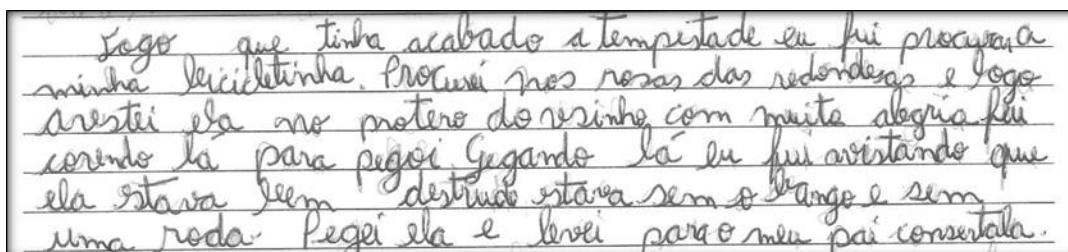 Logo que tinha acabado a tempestade eu fui procurar a
minha bicicletinha. Procurei nos rosas das redondesas e logo
avestei ela no protero do vesinho com muita alegria fui
corendo lá para pegoi Gegando lá eu fui avistando que
ela estava bem destruido estava sem o bango e sem
uma roda. Peguei ela e levei para o meu pai consertala.